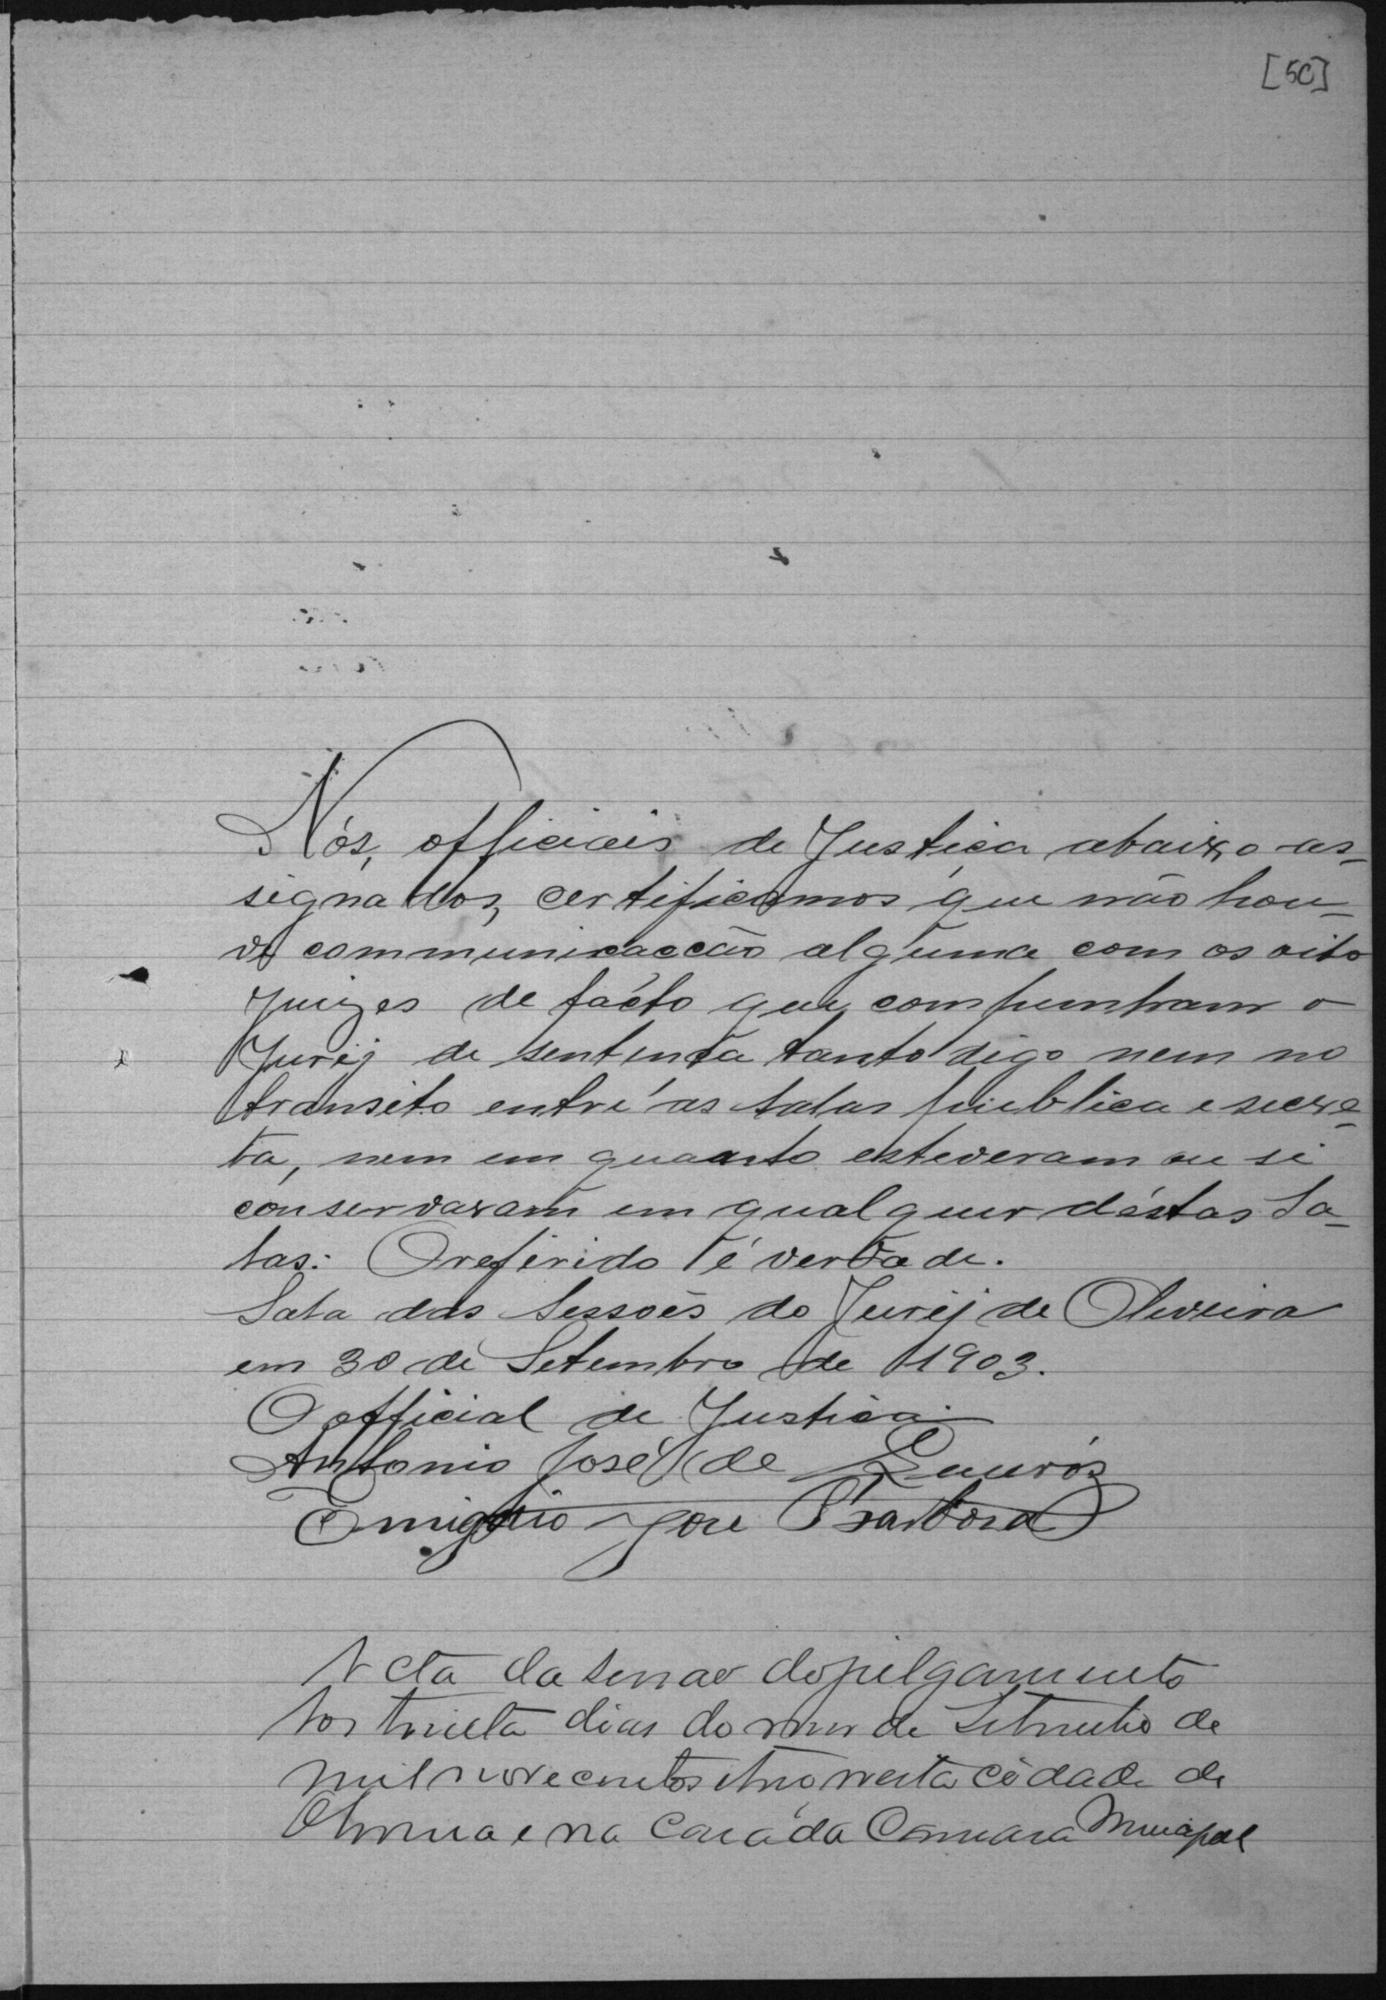 [50]
Nós, officiais de Justiça abaixo as-
signados, certificamos que não hou-
ve communicacção alguma com os oito
juizes de facto que compunham o
Jury de sentença tanto digo nem no
transito entre as salas publica e secre-
ta, nem em quanto estiveram ou si
conservaram em qualquer déstas Sa-
las: O referido é verdade.
Sala das Sessoēs do Jury de Oliveira
em 30 de Setembro de 1903.
O official de Justiça
Antonio José de
José Barbosa
Acta da sessao do julgamento
Aos trinta dias do mes de Setembro de
mil novecentos e tres nesta cidade de
Oliveira e na casa da Camara Municipal